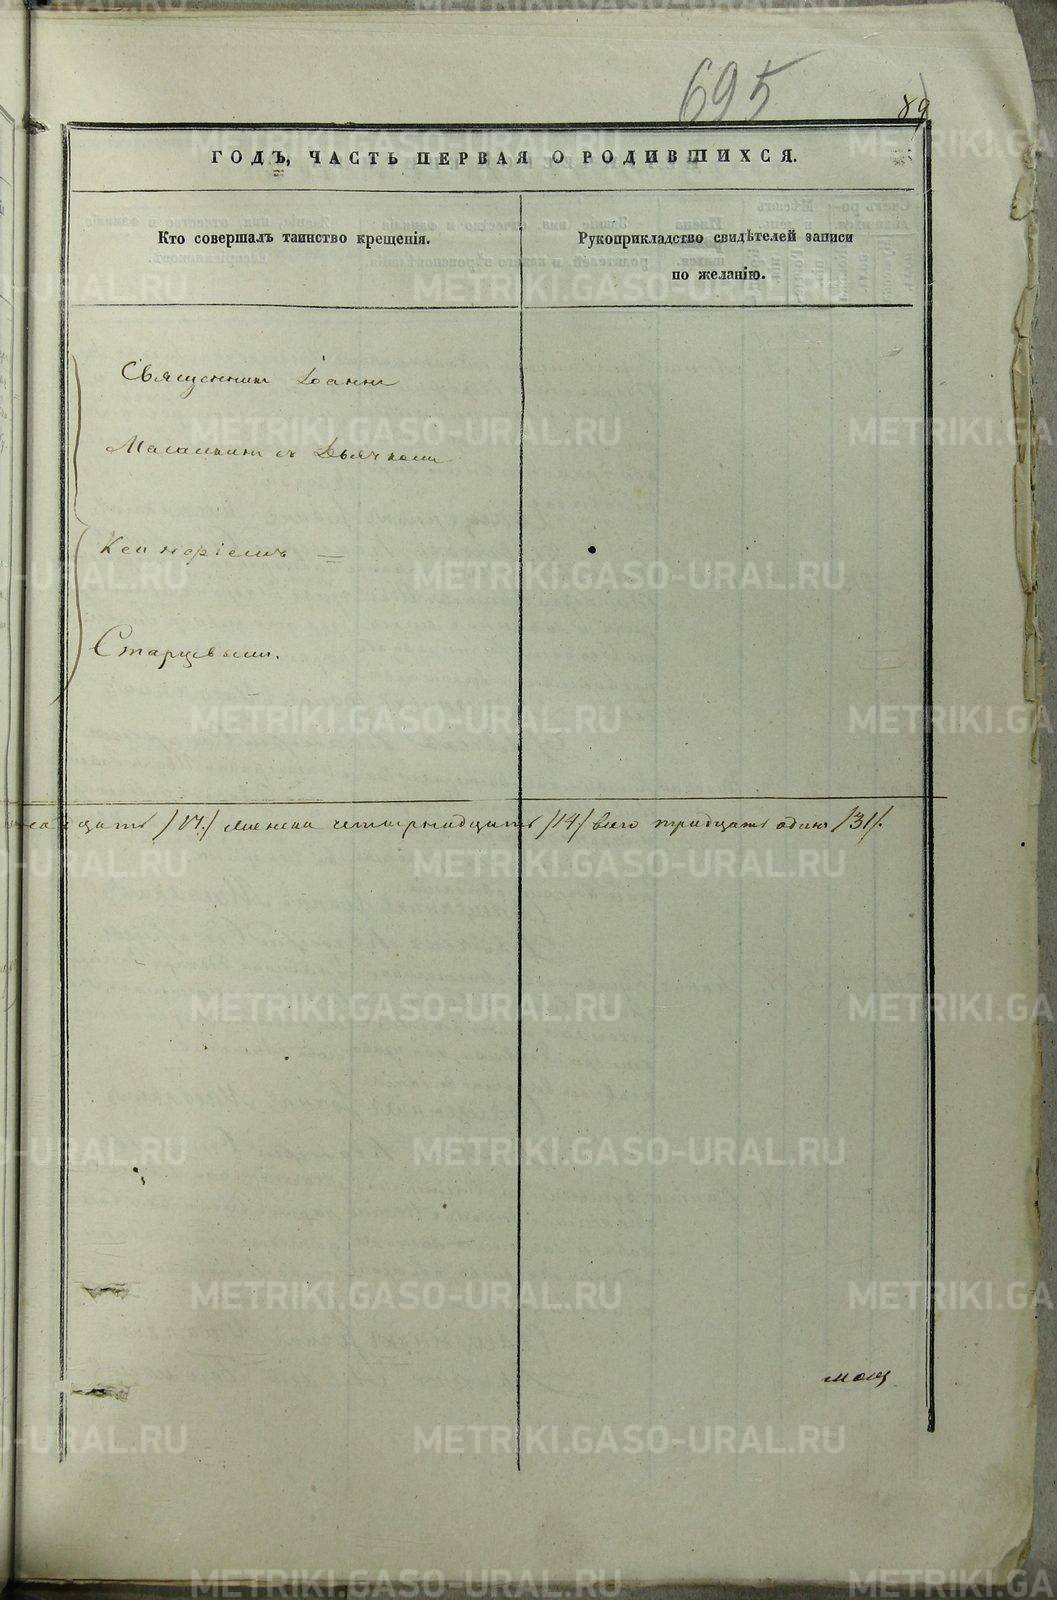 695
89
ГОДЪ, ЧАСТЬ ПЕРВАЯ О РОДИВШИХСЯ.
Кто совершалъ таинство крещенія.
Рукоприкладство свидѣтелей записи
по желанію.
Священник Іоанн
с Дьячком
Старцевым.
/17./ женска четырнадцать /14/ всего тридцать один /31/.
METRIKI.GASO-URAL.RU